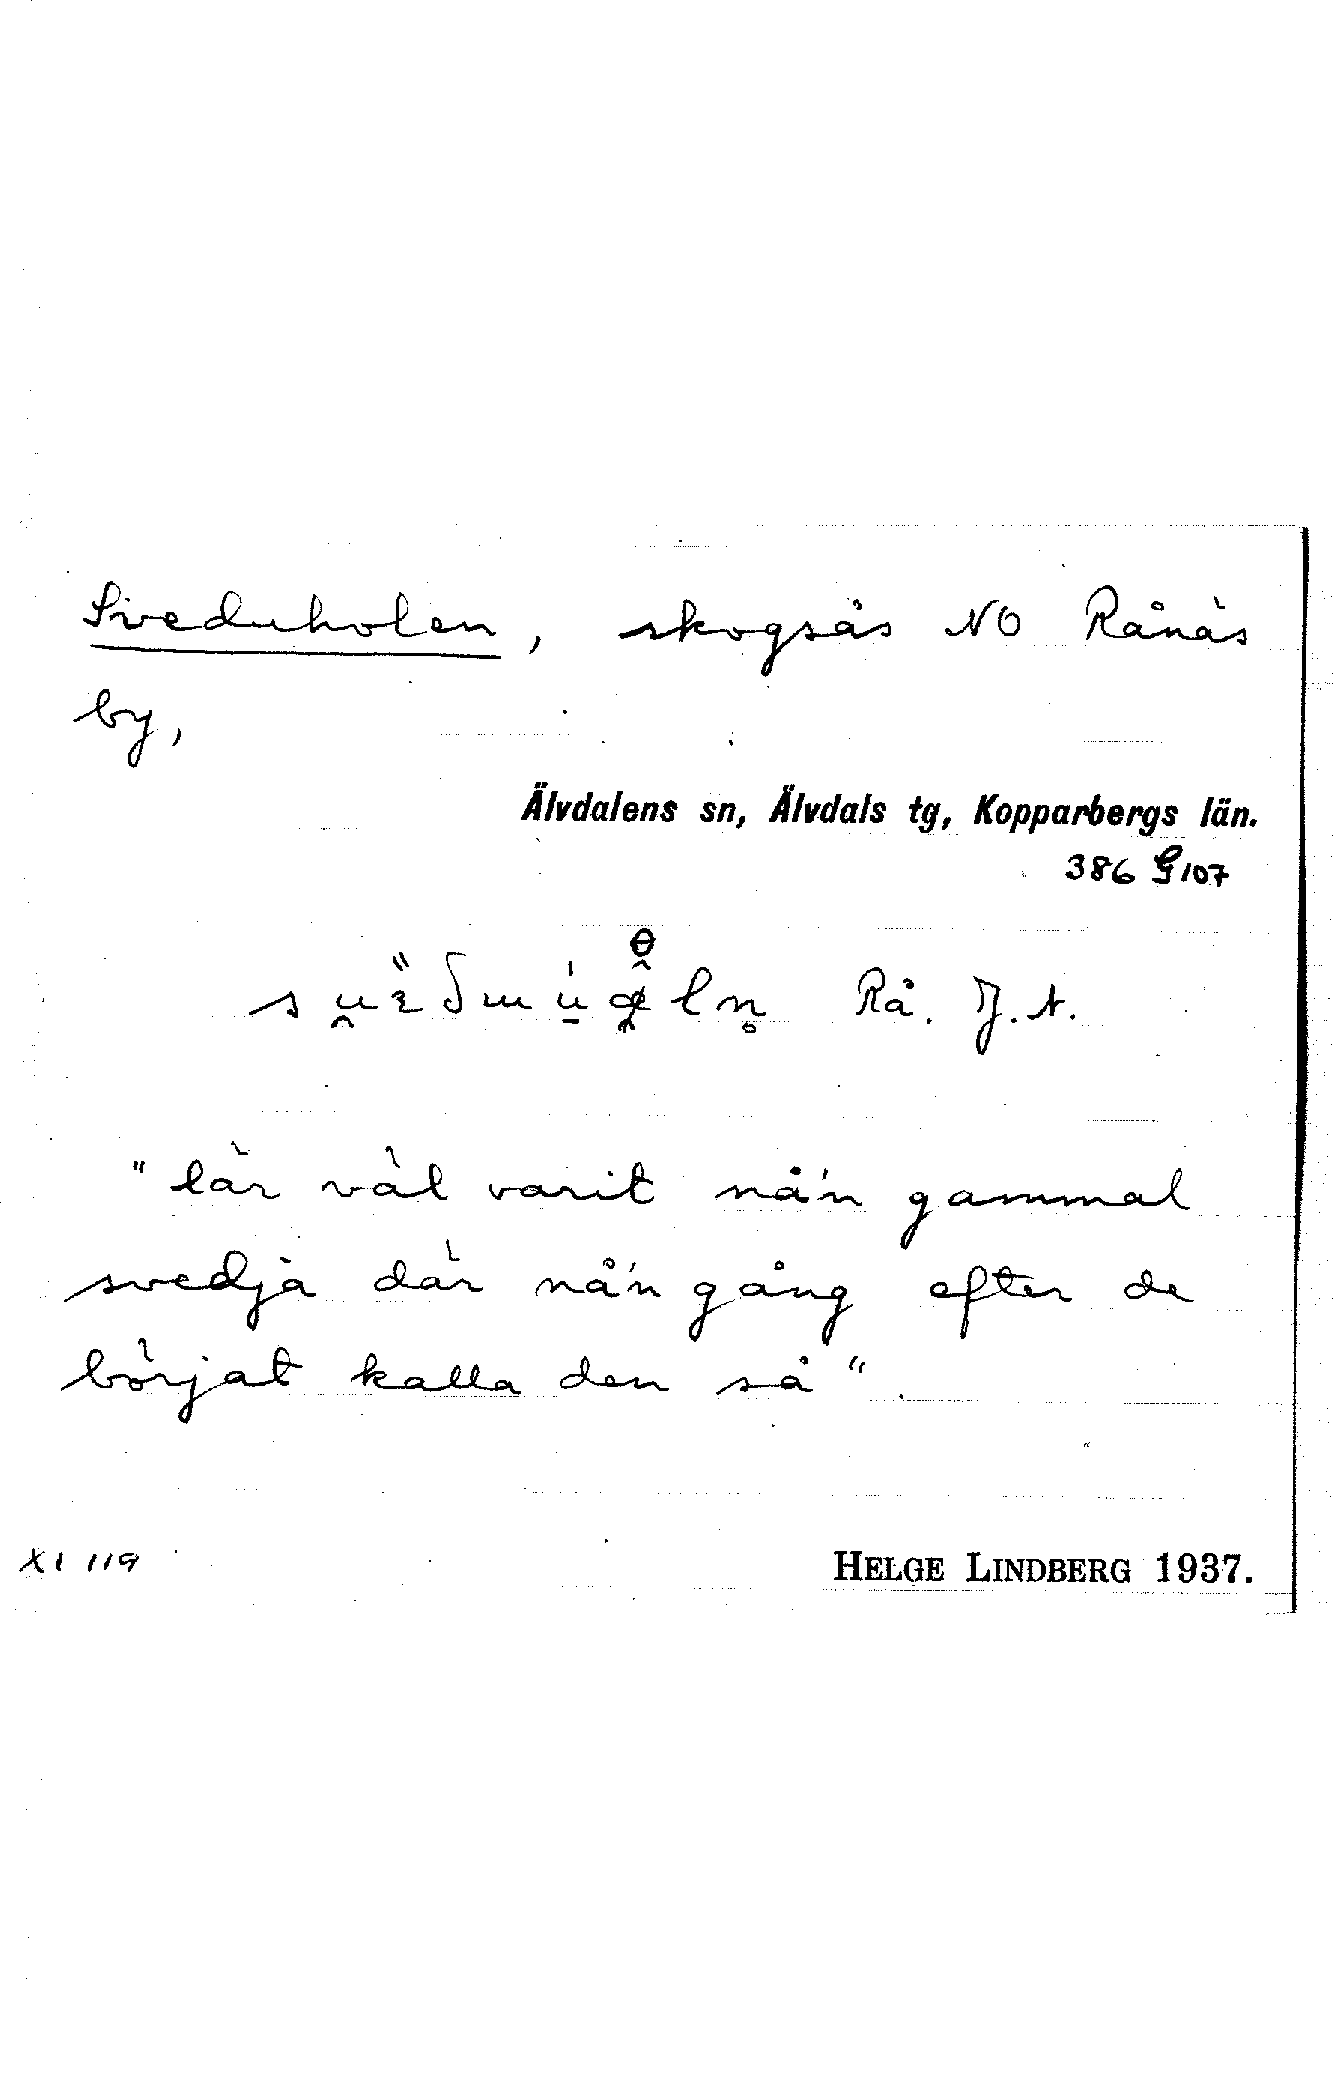 Sveduholen, skogsås NO Rånäs
by,
Älvdalens sn, Älvdals tg, Kopparbergs län.
386 G 107
Rå. J. A.
"lär väl varit nå'n gammal
svedja där nå'n gång efter de
börjat kalla den så".
XI 119
HELGE LINDBERG 1937.